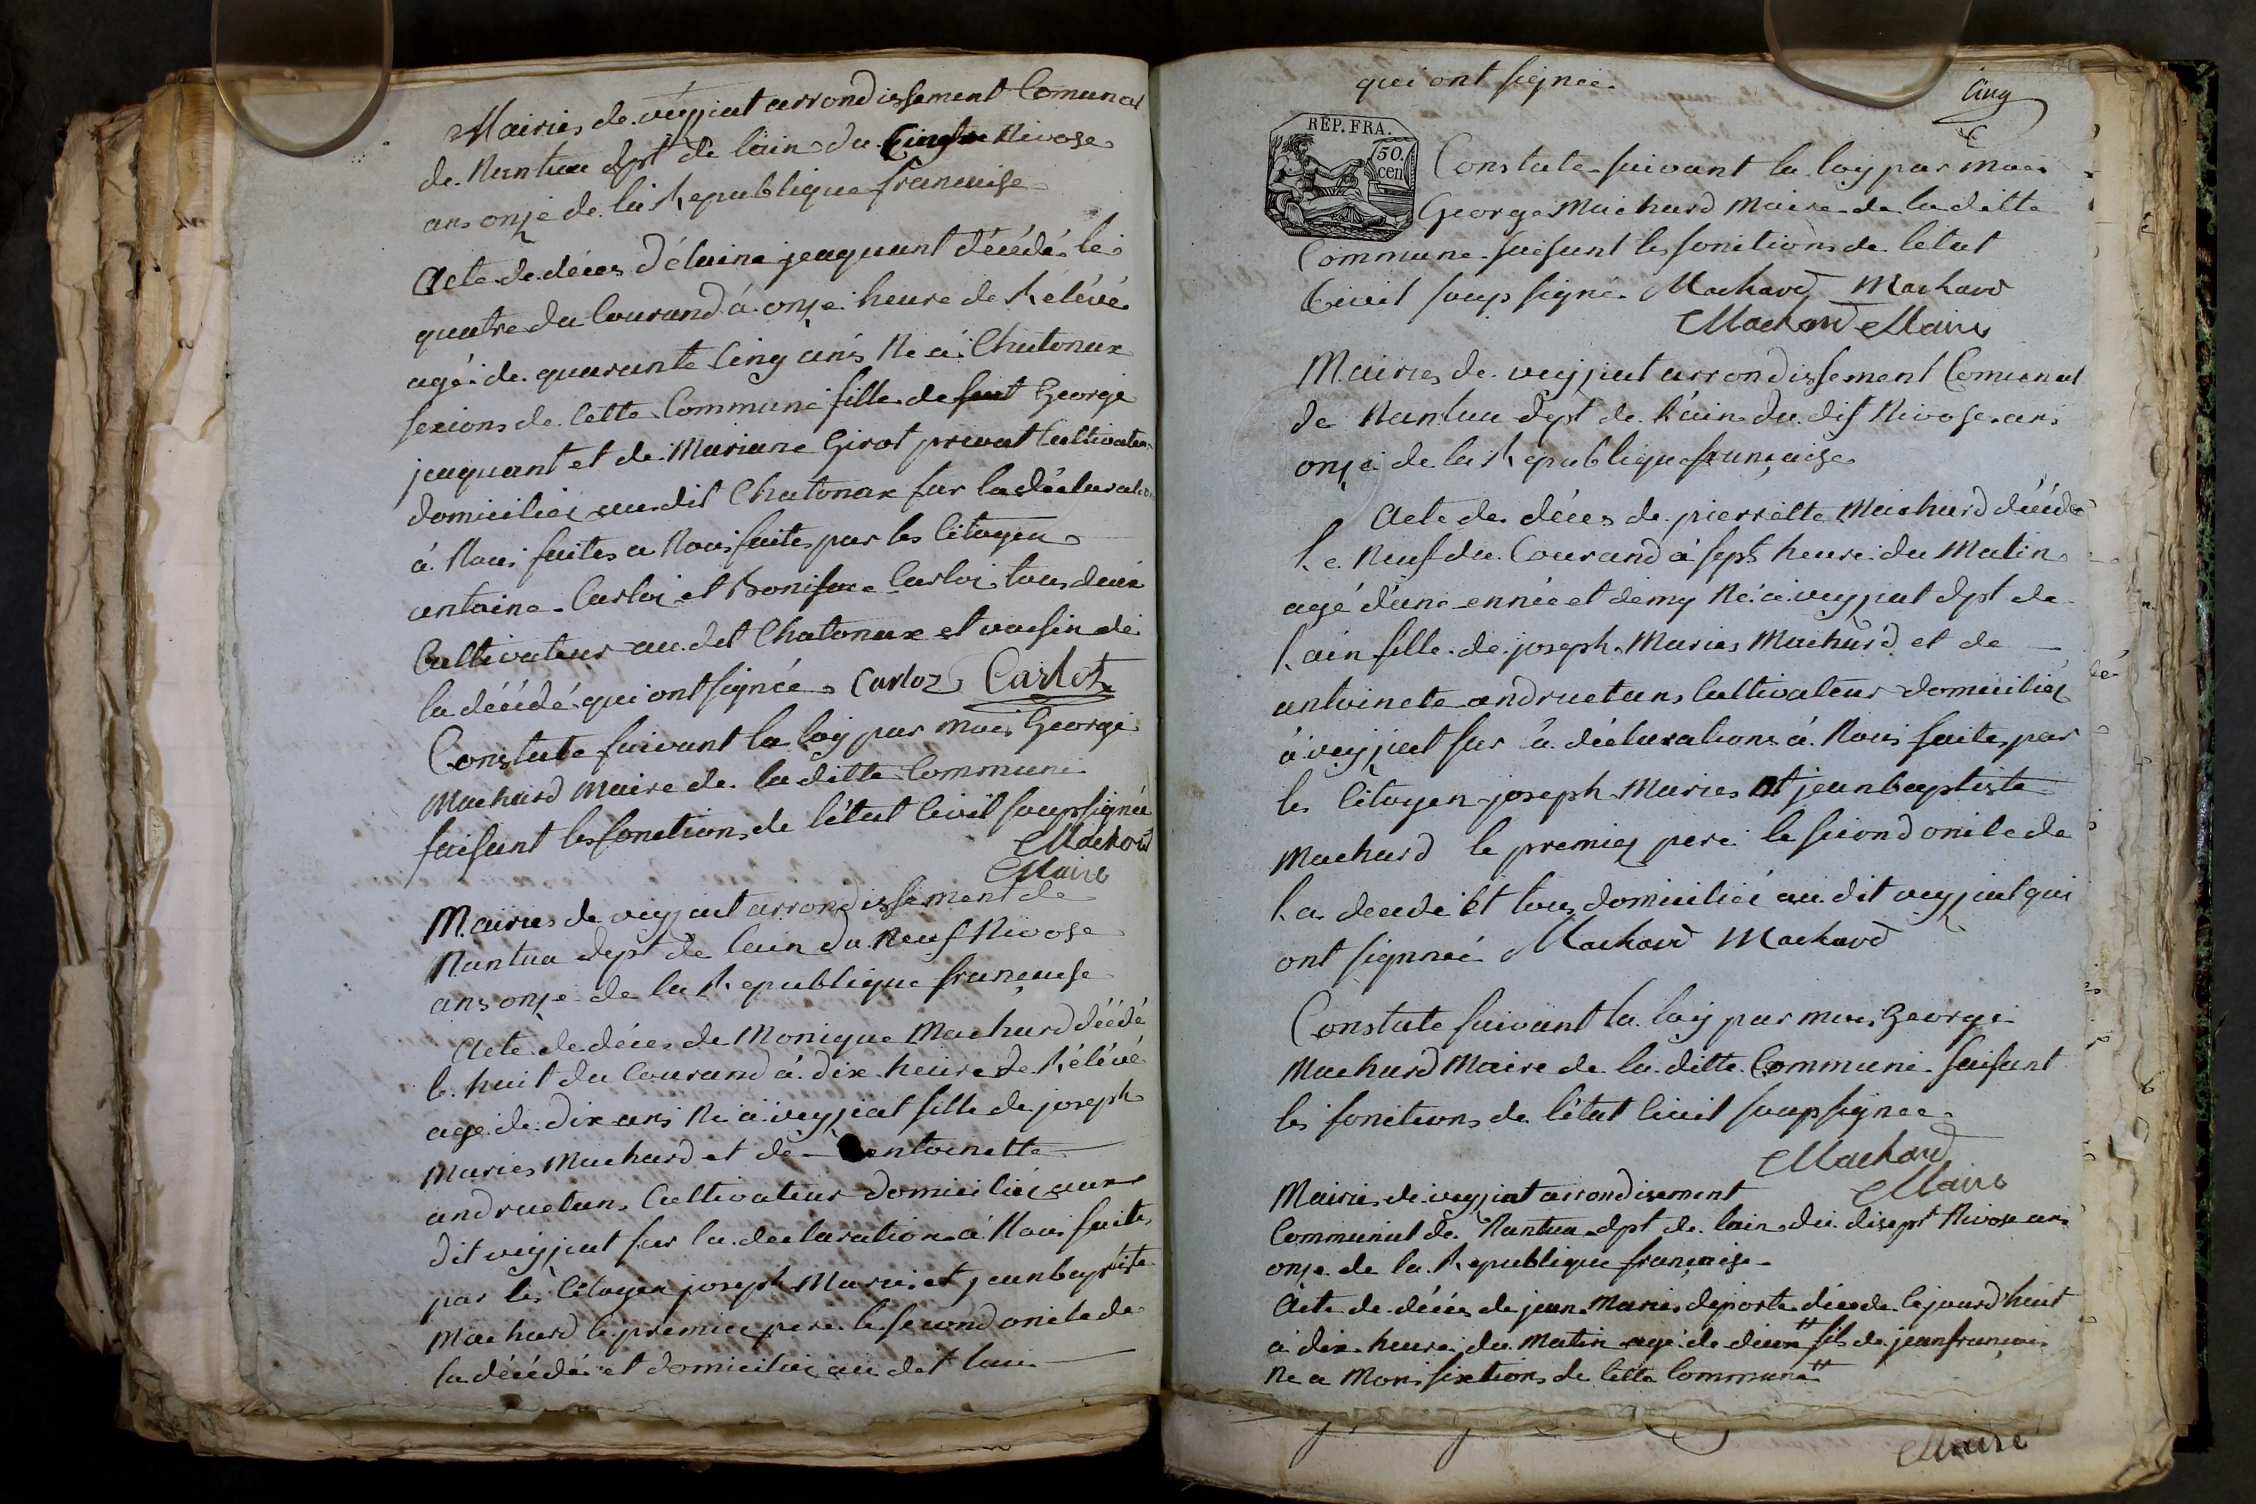 Mairies de veyziat arrondissement Comunal
de Nantua dpt de lain du Cinq Nivose
ans onze de la Republique francaise
Acte de déces d'élaine jeaquant décédé le
quatre du Courand á onze heure de Rélévé
agé de quarante Cinq ans Né á Chatonax
sexions de Cette Commune fille de feut George
jeaquant et de Mariane Girot prevat Cultivateur
domiciliez audit Chatonax sur la déclaration
á Nous faites a Nous faites par les Citoyen
antoine Carloz et Boniface Carloz tous deux
Cultivateur au dit Chatonax et voisin de
la décédé qui ont signée Carloz Carloz
Constate suivant la loy par Moi George
Machard Maire de la ditte Commune
faisant les fonctions de létat Civil soupsignée
Machard
Maire
Mairies de veyziat arrondissement de
Nantua dept de lain du Neuf Nivose
ans onze de la Republique francaise
Acte de déces de Monique Machard décédé
le huit du Courand á dix heure de Rélévé
agé de dix ans Né á veyziat fille de joseph
Maries Machard et de antoinette
andruetans Cultivateur domiciliéz aux
dit veyziat sur la declaration á Nous faites
par les Citoyen joseph Marie et jeanbaptiste
Machard le premier pere le second oncle de
la décédé et domiciliez au dit lieu
qui ont signée
Cinq
REP. FRA.
50. cen
Constate suivant la loy par Moi
George Machard Maire de la ditte
Commune faisant les fonctions de letat
Civil soupsigné Machard Machard
Machard Maire
Mairies de veyziat arrondissement Comunal
de Nantua dept de l'ain du dis Nivose ans
onze de la Republique française
Acte de déces de pierrette Machard décédé
le Neuf du Courand á sept heure du Matin
agé d'une année et demy Né á veyziat dpt de
l'ain fille de joseph Maries Machard et de
antoinete andruetans Cultivateur domiciliéz
á veyziat sur la déclarations á Nous faites par
les Citoyen joseph Maries et jeanbaptiste
Machard le premiez pere le second oncle de
la decedé et tous domicilié au dit veyziat qui
ont signnée Machard Machard
Constate suivant la loy par moi George
Machard Maire de la ditte Commune faisant
les fonctions de létat Civil soupsignee
Machard
Maire
Mairies de veyziat arrondisement
Communal de Nantua dpt de lain du disept Nivose ans
onze de la Republique française
Acte de déces de jean Maries deporte décede lejourd'huit
á dix heure du Matin agé de deux # fils de jeanfrançois
Né a Mons sixtions de Cette Commune #
Maire